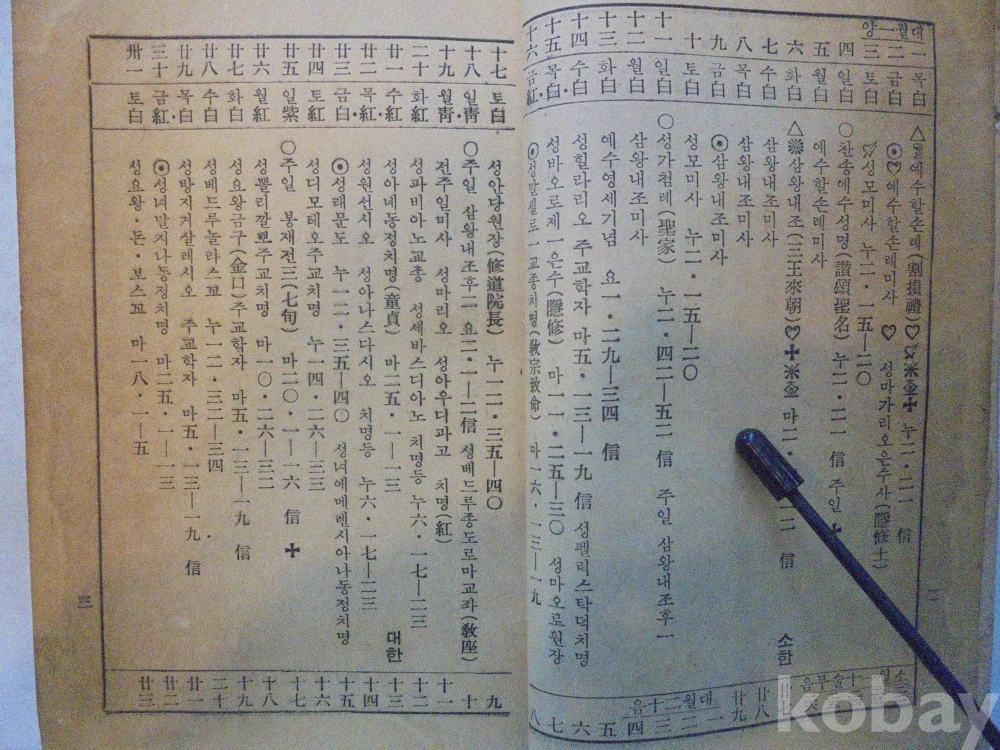 양 대월一
一 목白 △예수할손례(割損禮)♡ 누二·二一 信
二 금白 ⊙♡예수할손례미사 ♡ 성마가리오은수사(隱修士)
三 토白 성모미사 누二·一五—二〇
四 일白 ○찬송예수성명(讚頌聖名) 누二·二一 信 주일
五 월白 예수할손례미사
六 화白 △삼왕내조(三王來朝)♡ 마二· 一二 信 소한
七 수白 삼왕내조미사
八 목白 삼왕내조미사
九 금白 ⊙삼왕내조미사
十 토白 성모미사 누二·一五—二〇
十一 일白 ○성가첨례(聖家) 누二·四二—五二 信 주일 삼왕내조후一
十二 월白 삼왕내조미사
十三 화白 예수영세기념 요一·二九—三四 信
十四 수白 성힐라리오 주교학자 마五·一三—一九 信 성펠리스탁덕치명
十五 목白· 성바오로제一은수(隱修) 마一一·二五—三〇 성마오로원장
十六 금紅· ⊙성말셀로一교종치명(敎宗致命) 마一六·一三—一九
소
대월二
八 七 六 五 四
三
十七 토白 성안당원장(修道院長) 누一二·三五—四〇 九
十八 일靑· ○주일 삼왕내조후二 요二·一—二信 성베드루종도로마교좌(敎座) 十
十九 월靑· 전주일미사 성마리오 성아우디파고 치명(紅) 十一
二十 화紅 성파비아노교종 성세바스디아노 치명등 누六·一七—二三 十二
廿一 수紅· 성아녜동정치명(童貞) 마二五·一—一三 대한 十三
廿二 목紅· 성원선시오 성아나스다시오 치명등 누六·一七—二三 十四
廿三 금白· ⊙성래문도 누一二·三五—四〇 성녀에메렌시아나동정치명 十五
廿四 토紅 성디모테오주교치명 누一四·二六—三三 十六
廿五 일紫 ○주일 봉재전三(七旬) 마二〇·一—一六 信 ✚ 十七
廿六 월紅 성뽈리깔뽀주교치명 마一〇·二六—三二 十八
廿七 화白 성요왕금구(金口)주교학자 마五·一三—一九 信 十九
廿八 수白· 성베드루놀라스꼬 누一二·三二—三四 二十
廿九 목白 성방지거살레시오 주교학자 마五·一三—一九 信 廿一
三十 금紅· ⊙성녀말치나동정치명 마二五·一—一三 廿二
卅一 토白 성요왕·돈·보스꼬 마一八·一—五 廿三
三
kobay